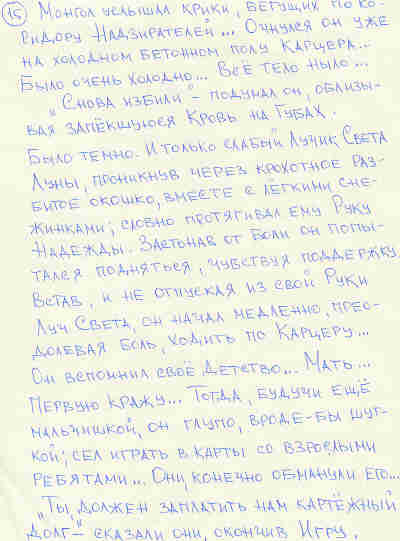 15 Монгол услышал крики, бегущих по ко-
ридору Надзирателей... Очнулся он уже
на холодном бетонном полу Карцера...
Было очень холодно... Всё тело ныло...
"Снова избили" - подумал он, облизы-
вая запёкшуюся Кровь на Губах.
Было темно. И только слабый Лучик Света
Луны, проникнув через крохотное раз-
битое окошко, вместе с лёгкими сне-
жинками; словно протягивал ему Руку
Надежды. Застонав от Боли он попы-
тался подняться, чувствуя поддержку.
Встав, и не отпуская из свой Руки
Луч Света, он начал медленно, прео-
долевая Боль, ходить по Карцеру...
Он вспомнил своё Детство... Мать...
Первую Кражу... Тогда, будучи ещё
мальчишкой, он глупо, вроде-бы шут-
кой; сел играть в карты со взрослыми
ребятами... Они, конечно обманули его...
"Ты должен заплатить нам картёжный
Долг" - сказали они, окончив Игру.